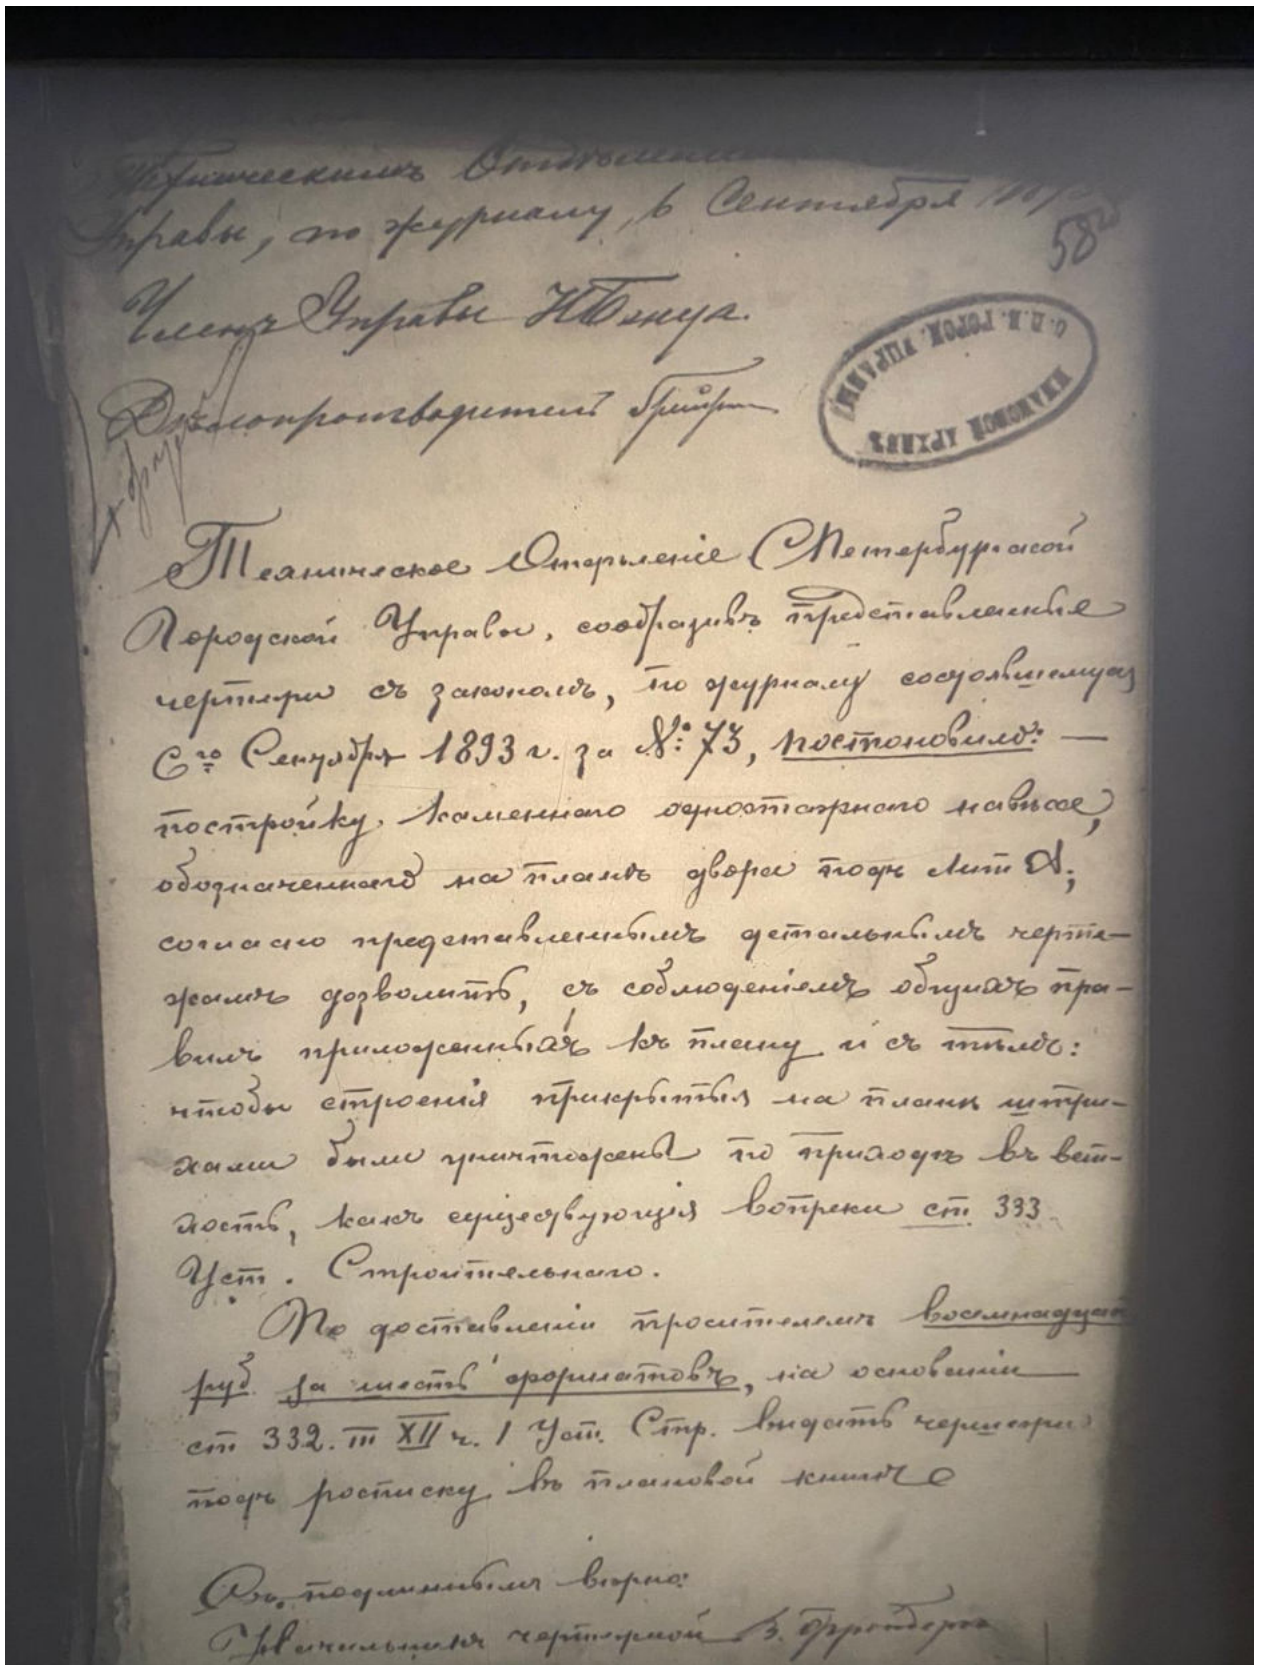 Техническимъ Отделении
Управы, по журналу, 6 Сентября
58
Членъ Управы Н Бенуа.
С.П.Б. ГОРОД. УПРАВЫ
ПЛАНОВОЙ АРХИВЪ
Делопроизводитель
Техническое Отделеніе СПетербургской
Городской Управы, сообразивъ представленные
чертежи съ закономъ, по журналу состоявшемуся
6го Сентября 1893 г. за №: 73, постановило: —
постройку каменнаго одноэтажнаго навеса,
обозначеннаго на плане двора подъ Лит А,
согласно представленнымъ детальнымъ черте-
жамъ дозволить, съ соблюденіемъ общихъ пра-
вилъ приложенныхъ къ плану и съ темъ:
чтобы строенія прикрытыя на плане штри-
хами были уничтожены по приходе въ вет-
хость, какъ существующія вопреки ст. 333
Уст. Строительнаго.
По доставленіи просителемъ восемнадцати
руб за шесть форматовъ, на основаніи
ст 332. т XII ч. 1 Уст. Стр. выдать чертежи
подъ росписку въ плановой книге
Съ подлиннымъ верно:
Начальникъ чертежной В.